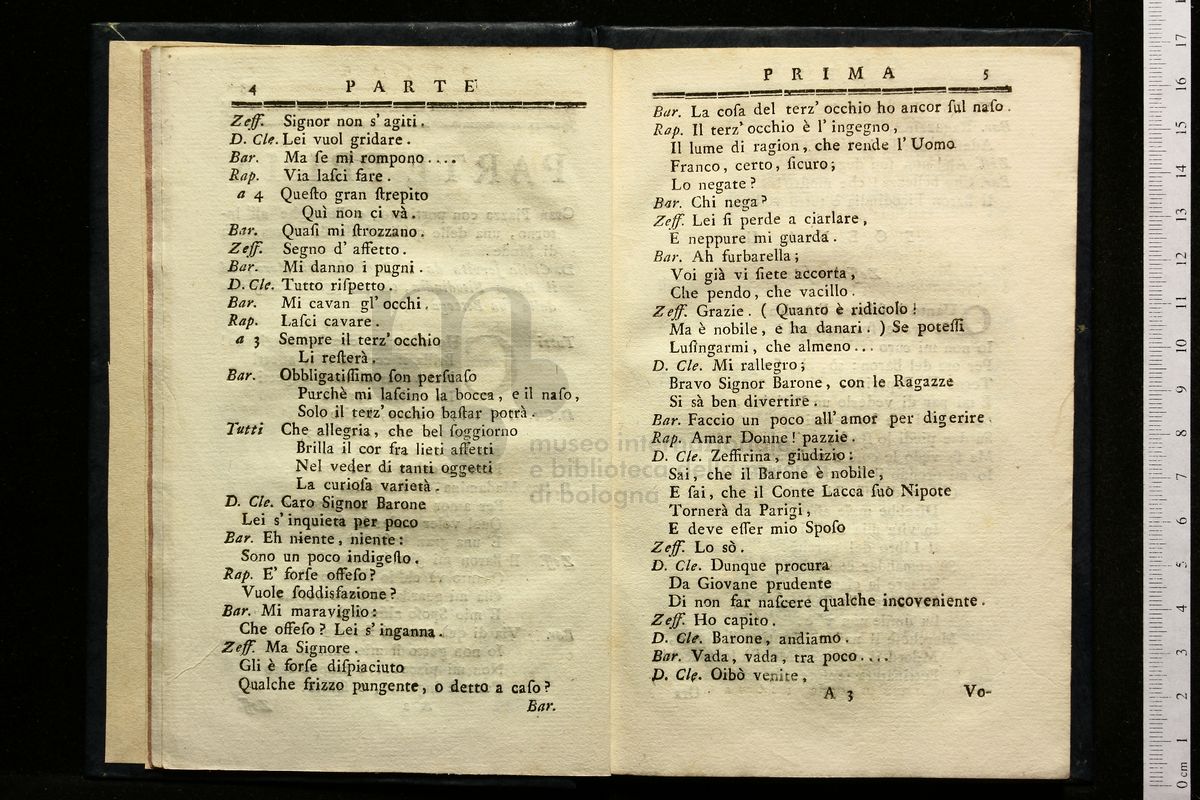 4 PARTE
Zeff. Signor non s' agiti.
D. Cle. Lei vuol gridare.
Bar. Ma ſe mi rompono....
Rap. Via laſci fare.
a 4 Queſto gran ſtrepito
Quì non ci và.
Bar. Quaſi mi ſtrozzano.
Zeff. Segno d' affetto.
Bar. Mi danno i pugni.
D. Cle. Tutto riſpetto.
Bar. Mi cavan gl' occhi.
Rap. Laſci cavare.
a 3 Sempre il terz' occhio
Li reſterà.
Bar. Obbligatiſſimo ſon perſuaſo
Purchè mi laſcino la bocca, e il naſo,
Solo il terz' occhio baſtar potrà.
Tutti Che allegria, che bel ſoggiorno
Brilla il cor fra lieti affetti
Nel veder di tanti oggetti
La curioſa varietà.
D. Cle. Caro Signor Barone
Lei s' inquieta per poco
Bar. Eh niente, niente:
Sono un poco indigeſto.
Rap. E' forſe offeſo?
Vuole ſoddisfazione?
Bar. Mi maraviglio:
Che offeſo? Lei s' inganna.
Zeff. Ma Signore.
Gli è forſe diſpiaciuto
Qualche frizzo pungente, o detto a caſo?
Bar.
PRIMA 5
Bar. La coſa del terz' occhio ho ancor ſul naſo.
Rap. Il terz' occhio è l' ingegno,
Il lume di ragion, che rende l' Uomo
Franco, certo, ſicuro;
Lo negate?
Bar. Chi nega?
Zeff. Lei ſi perde a ciarlare,
E neppure mi guarda.
Bar. Ah furbarella;
Voi già vi ſiete accorta,
Che pendo, che vacillo.
Zeff. Grazie. ( Quanto è ridicolo!
Ma è nobile, e ha danari. ) Se poteſſi
Luſingarmi, che almeno...
D. Cle. Mi rallegro;
Bravo Signor Barone, con le Ragazze
Si sà ben divertire.
Bar. Faccio un poco all' amor per digerire.
Rap. Amar Donne! pazzie.
D. Cle. Zeffirina, giudizio:
Sai, che il Barone è nobile,
E ſai, che il Conte Lacca ſuo Nipote
Tornerà da Parigi,
E deve eſſer mio Spoſo
Zeff. Lo sò.
D. Cle. Dunque procura
Da Giovane prudente
Di non far naſcere qualche incoveniente.
Zeff. Ho capito.
D. Cle. Barone, andiamo.
Bar. Vada, vada, tra poco....
D. Cle. Oibò venite,
A 3 Vo-